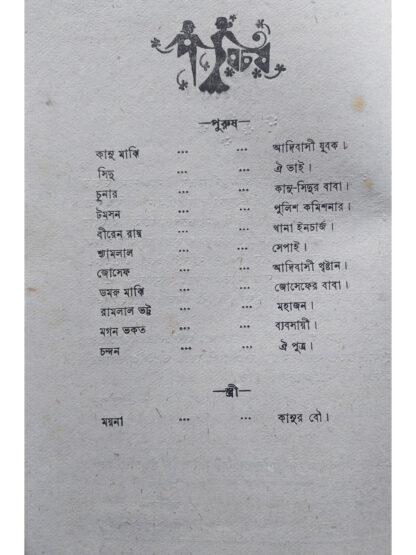 পরিচয়
—পুরুষ—
কানু মাঝি ... ... আদিবাসী যুবক।
সিদু ... ... ঐ ভাই।
চুনার ... ... কানু-সিদুর বাবা।
টমসন ... ... পুলিশ কমিশনার।
বীরেন রায় ... ... থানা ইনচার্জ।
শ্যামলাল ... ... সেপাই।
জোসেফ ... ... আদিবাসী খৃষ্টান।
ডমরু মাঝি ... ... জোসেফের বাবা।
রামলাল ভট্ট ... ... মহাজন।
মগন ভকত ... ... ব্যবসায়ী।
চন্দন ... ... ঐ পুত্র।
—স্ত্রী—
ময়না ... ... কানুর বৌ।